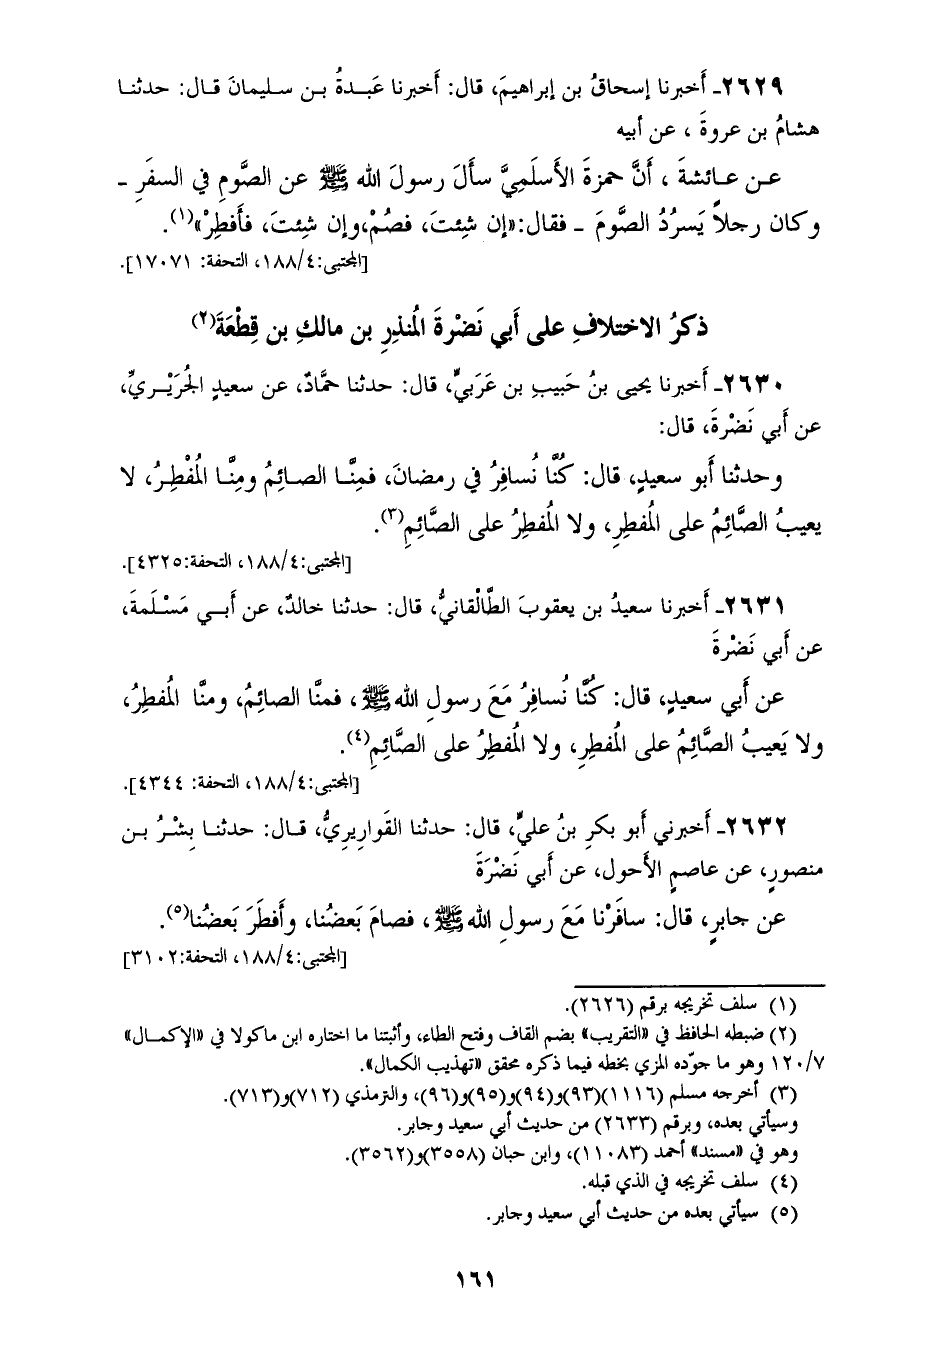 ٢٦٢٩ـ أَخبرنا إسحاقُ بن إبراهيمَ، قال: أَخبرنا عَبدةُ بـن سـليمانَ قـال: حدثنـا
هشامُ بن عروةَ ، عن أبيه
عـن عـائشةَ ، أَنَّ حمزةَ الأَسلَمِيَّ سأَلَ رسولَ الله ﷺ عن الصَّومِ في السفَرِ ـ
وكان رجلاً يَسرُدُ الصَّومَ ـ فقال:«إن شئِتَ، فصُمْ،وإن شئِتَ، فأَفطِرْ»(١).
[المجتبى:١٨٨/٤، التحفة: ١٧٠٧١].
ذكرُ الاختلافِ على أَبي نَضْرةَ المُنذِرِ بن مالكِ بن قِطْعَةَ(٢)
٢٦٣٠ـ أَخبرنا يحيى بنُ حَبيبِ بن عَرَبيٍّ، قال: حدثنا حمَّادٌ، عن سعيدٍ الجُرَيْـريِّ،
عن أَبي نَضْرةَ، قال:
وحدثنا أَبو سعيدٍ، قال: كُنَّا نُسافِرُ في رمضانَ، فمِنَّـا الصـائِمُ ومِنَّـا المُفْطِـرُ، لا
يعيبُ الصَّائِمُ على المُفطِرِ، ولا المُفطِرُ على الصَّائِمِ(٣).
[المجتبى:١٨٨/٤، التحفة:٤٣٢٥].
٢٦٣١ـ أَخبرنا سعيدُ بن يعقوبَ الطَّالْقانيُّ، قال: حدثنا خالدٌ، عن أَبـي مَسْـلَمةَ،
عن أَبي نَضْرةَ
عن أَبي سعيدٍ، قال: كُنَّا نُسافِرُ مَعَ رسولِ اللهﷺ ، فمنَّا الصائِمُ، ومنَّا المُفطِرُ،
ولا يَعيبُ الصَّائِمُ على المُفطِرِ، ولا المُفطِرُ على الصَّائِمِ(٤).
[المجتبى:١٨٨/٤، التحفة: ٤٣٤٤].
٢٦٣٢ـ أَخبرني أَبو بكرِ بنُ عليٍّ، قال: حدثنا القَواريريُّ، قـال: حدثنـا بِشْـرُ بـن
منصورٍ، عن عاصمٍ الأَحول، عن أَبي نَضْرَةَ
عن جابرٍ، قال: سافَرْنا مَعَ رسولِ اللهﷺ ، فصامَ بَعضُنا، وأَفطَرَ بَعضُنا(٥).
[المجتبى:١٨٨/٤، التحفة:٣١٠٢]
(١) سلف تخريجه برقم (٢٦٢٦).
(٢) ضبطه الحافظ في «التقريب» بضم القاف وفتح الطاء، وأثبتنا ما اختاره ابن ماكولا في «الإكمـال»
١٢٠/٧ وهو ما جوّده المزي بخطه فيما ذكره محقق «تهذيب الكمال».
(٣) أخرجه مسلم (١١١٦)(٩٣)و(٩٤)و(٩٥)و(٩٦)، والترمذي (٧١٢)و(٧١٣).
وسيأتي بعده، وبرقم (٢٦٣٣) من حديث أبي سعيد وجابر.
وهو في «مسند» أحمد (١١٠٨٣)، وابن حبان (٣٥٥٨)و(٣٥٦٢).
(٤) سلف تخريجه في الذي قبله.
(٥) سيأتي بعده من حديث أبي سعيد وجابر.
١٦١